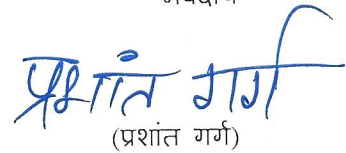 प्रशांत गर्ग
(प्रशांत गर्ग)